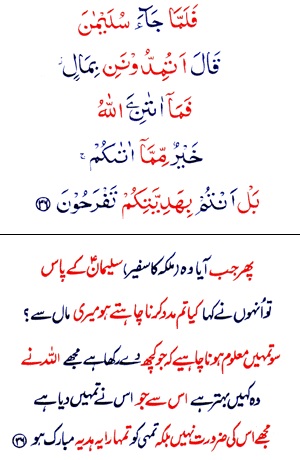 فَلَمَّا جَآءَ سُلَيْمٰنَ
قَالَ اَتُمِدُّوْنَنِ بِمَالٍ ؗ
فَمَاۤ اٰتٰىنِۦَ اللّٰهُ
خَيْرٌ مِّمَّاۤ اٰتٰىكُمْ ۚ
بَلْ اَنْتُمْ بِهَدِيَّتِكُمْ تَفْرَحُوْنَ ﴿۳۶﴾
پھر جب آیا وہ (ملکہ کا سفیر) سلیمانؑ کے پاس
تو اُنہوں نے کہا کیا تم مدد کرنا چاہتے ہو میری مال سے؟
سو تمہیں معلوم ہونا چاہیے کہ جو کچھ دے رکھا ہے مجھے اللہ نے
وہ کہیں بہتر ہے اس سے جو اس نے تمہیں دیا ہے
مجھے اس کی ضرورت نہیں بلکہ تمہی کو تمہارا یہ ہدیہ مبارک ہو ﴿۳۶﴾